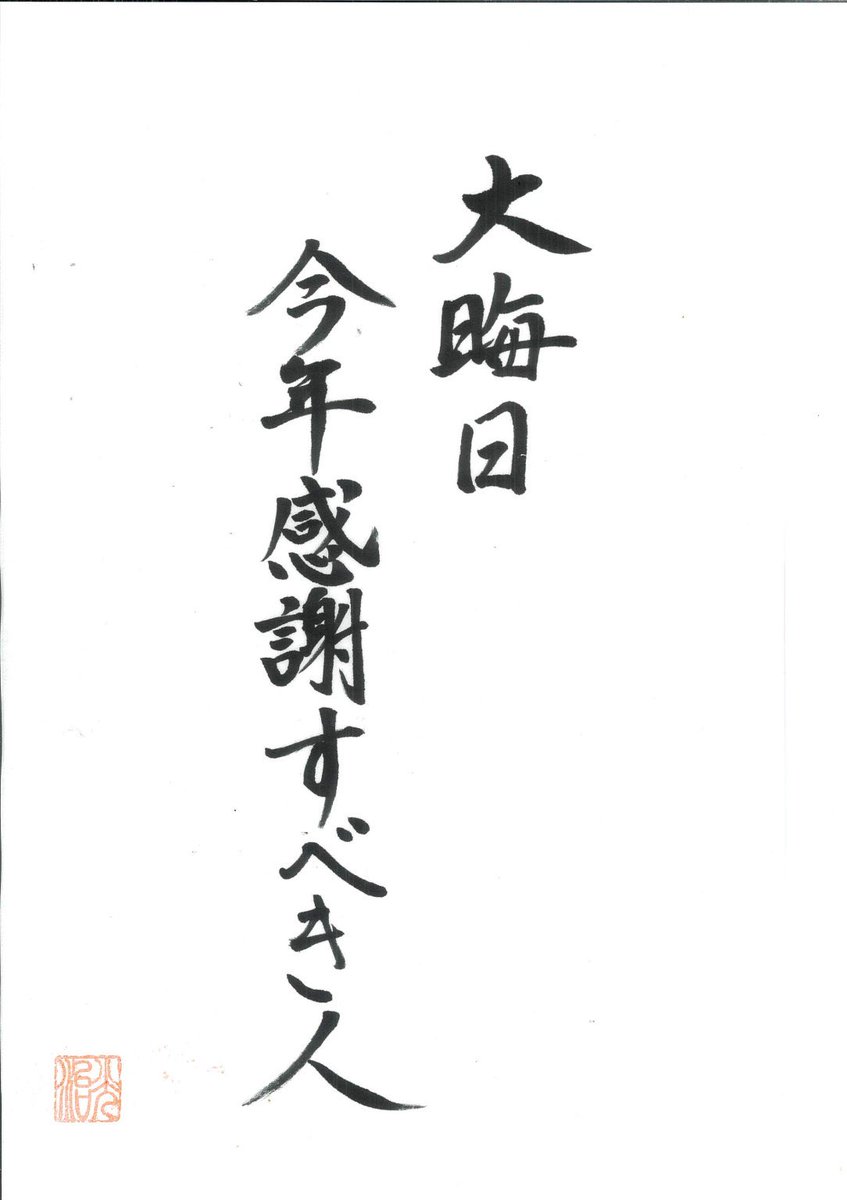 大晦日
今年感謝すべき人